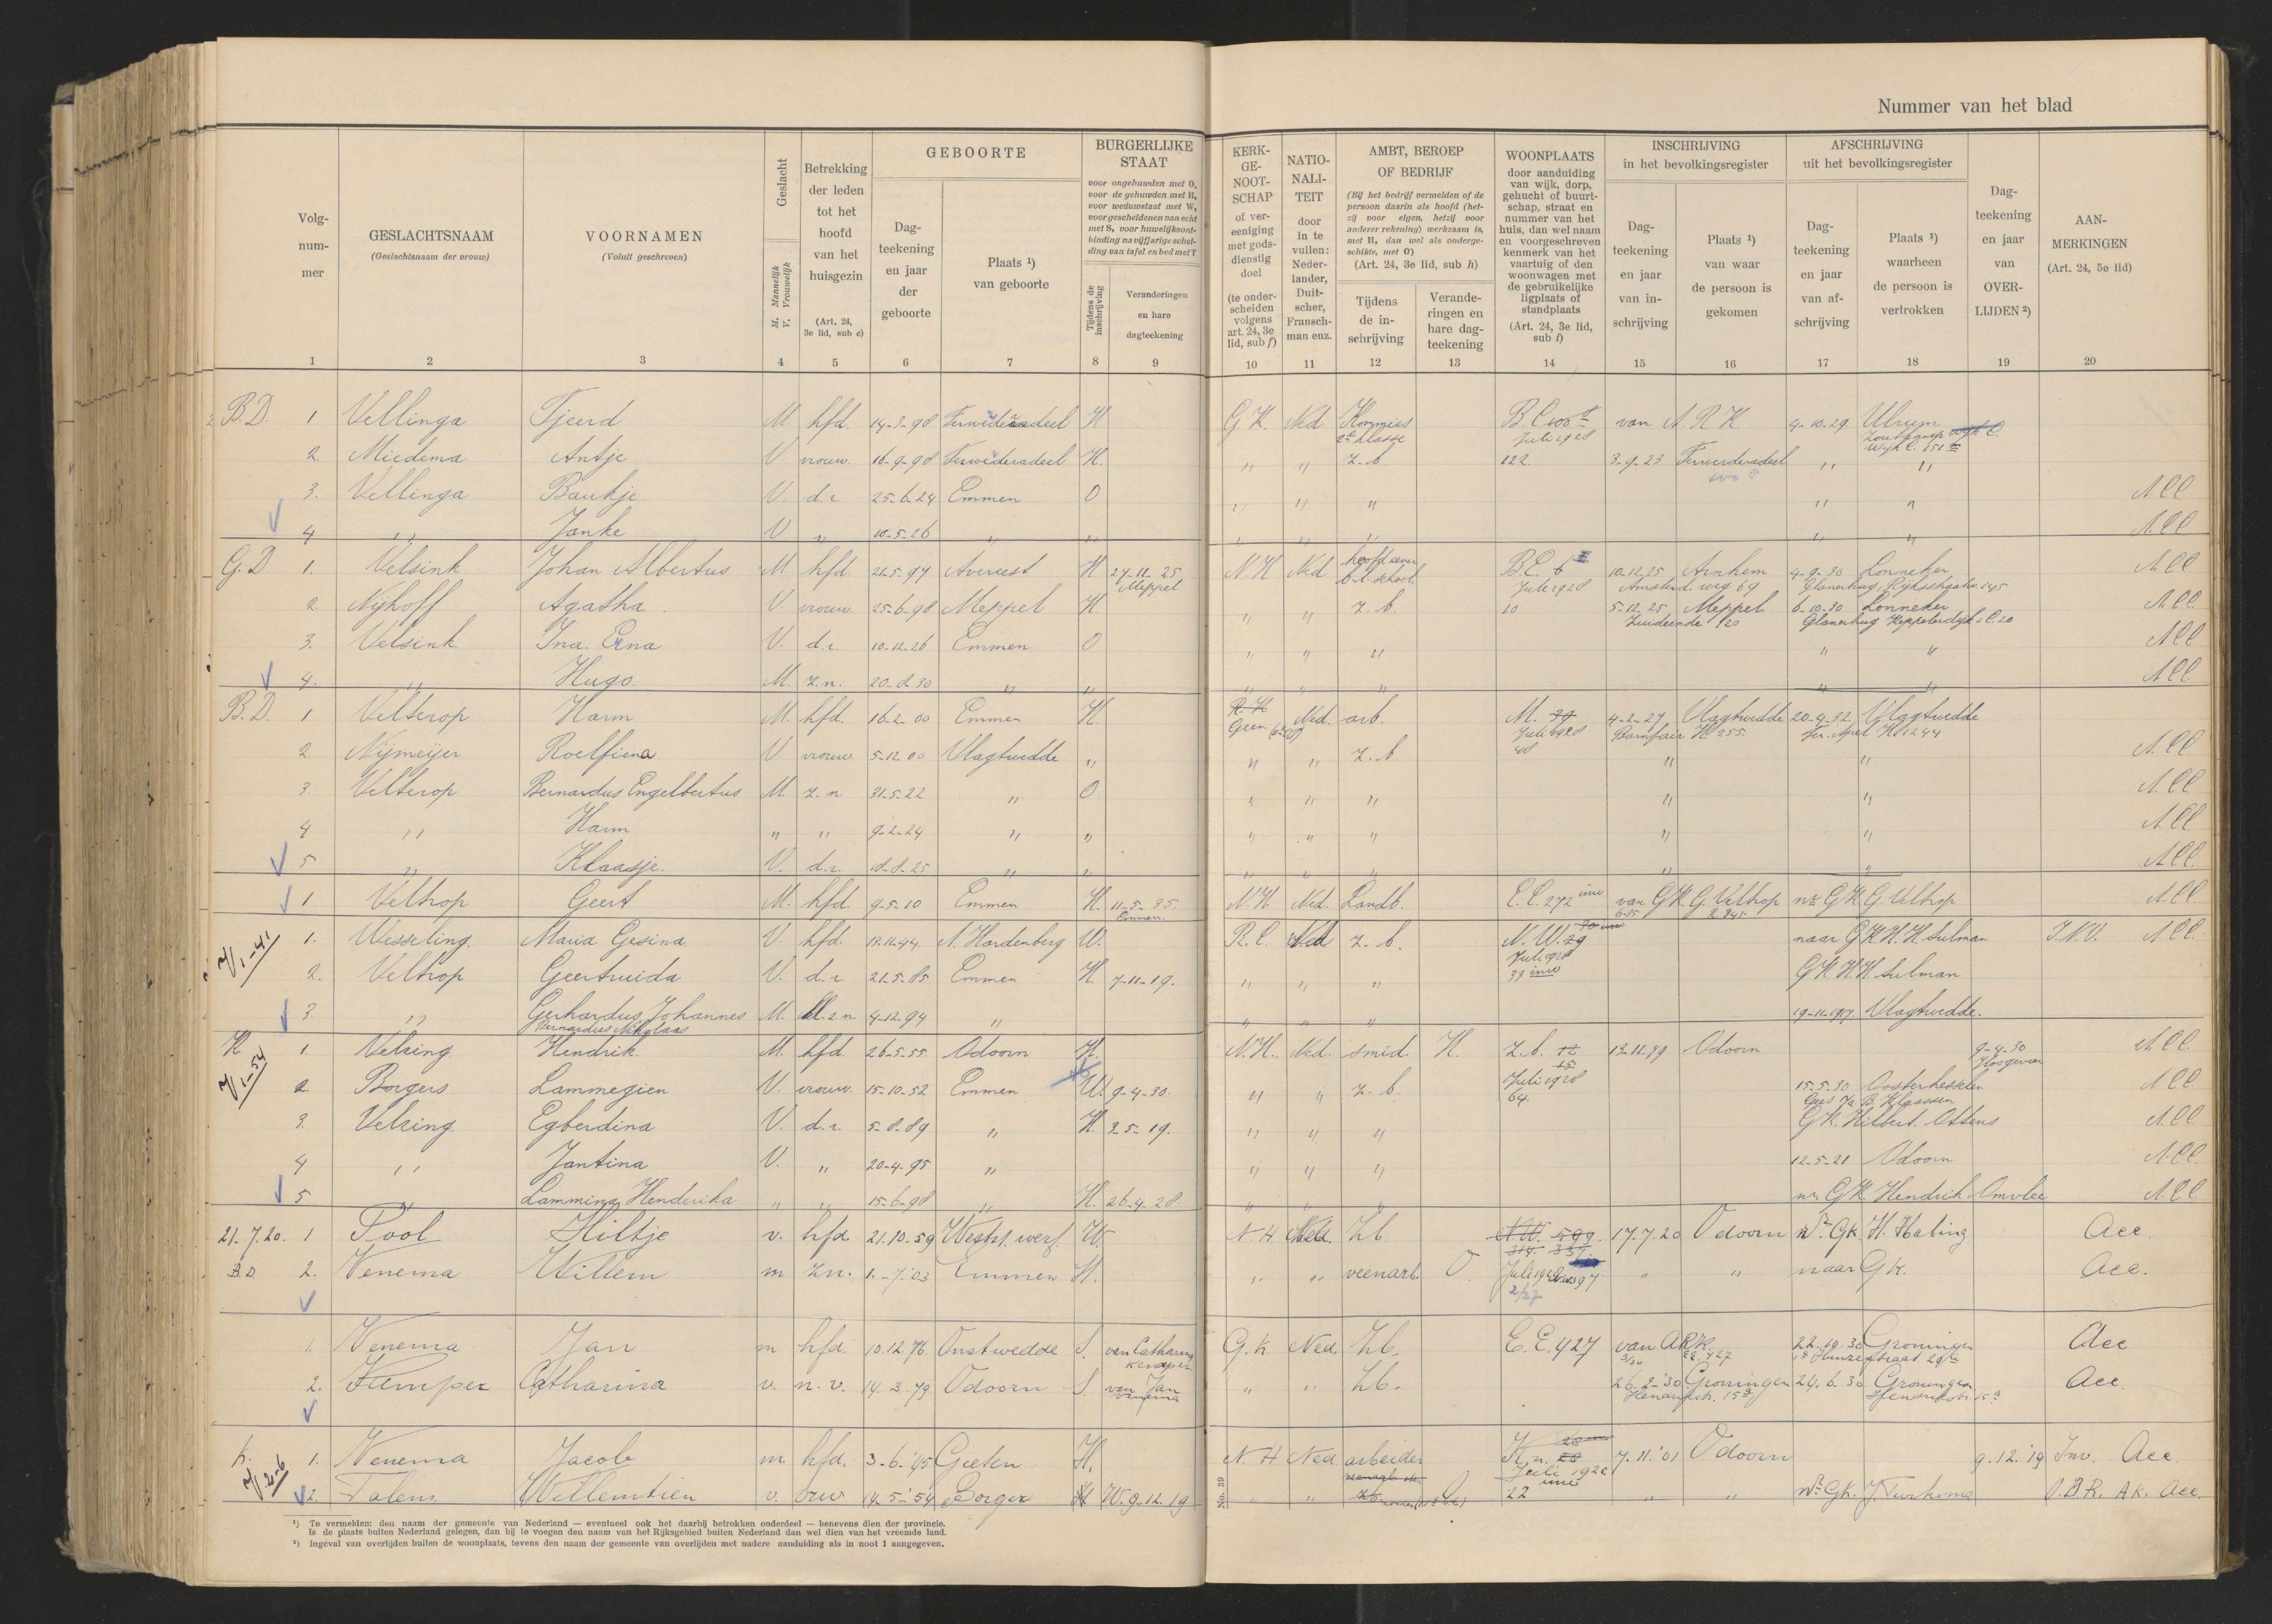 Nummer van het blad
Volg-
num-
mer
GESLACHTSNAAM
(Geslachtsnaam der vrouw)
VOORNAMEN
(Voluit geschreven)
Geslacht
M. Mannelijk
V. Vrouwelijk
Betrekking
der leden
tot het
hoofd
van het
huisgezin
(Art. 24,
3e lid, sub c)
GEBOORTE
Dag-
teekening
en jaar
der
geboorte
Plaats ¹)
van geboorte
BURGERLIJKE
STAAT
voor ongehuwden met O,
voor de gehuwden met H,
voor weduwstaat met W,
voor gescheidenen van echt
met S, voor huwelijksont-
binding na vijfjarige schei-
ding van tafel en bed met T
Tijdens de
inschrijving
Veranderingen
en hare
dagteekening
KERK-
GE-
NOOT-
SCHAP
of ver-
eeniging
met gods-
dienstig
doel
(te onder-
scheiden
volgens
art. 24, 3e
lid, sub f)
NATIO-
NALI-
TEIT
door
in te
vullen:
Neder-
lander,
Duit-
scher,
Fransch-
man enz.
AMBT, BEROEP
OF BEDRIJF
(Bij het bedrijf vermelden of de
persoon daarin als hoofd (het-
zij voor eigen, hetzij voor
anderer rekening) werkzaam is,
met H, dan wel als onderge-
schikte, met O)
(Art. 24, 3e lid, sub h)
Tijdens
de in-
schrijving
Verande-
ringen en
hare dag-
teekening
WOONPLAATS
door aanduiding
van wijk, dorp,
gehucht of buurt-
schap, straat en
nummer van het
huis, dan wel naam
en voorgeschreven
kenmerk van het
vaartuig of den
woonwagen met
de gebruikelijke
ligplaats of
standplaats
(Art. 24, 3e lid,
sub i)
INSCHRIJVING
in het bevolkingsregister
Dag-
teekening
en jaar
van in-
schrijving
Plaats ¹)
van waar
de persoon is
gekomen
AFSCHRIJVING
uit het bevolkingsregister
Dag-
teekening
en jaar
van af-
schrijving
Plaats ¹)
waarheen
de persoon is
vertrokken
Dag-
teekening
en jaar
van
OVER-
LIJDEN ²)
AAN-
MERKINGEN
(Art. 24, 5e lid)
1 2 3 4 5 6 7 8 9 10 11 12 13 14 15 16 17 18 19 20
B.D. 1 Vellinga Tjeerd M. hfd. 14-3-98 Ferwerderadeel H G.K. Ned Kommies 2e klasse Juli 1928 van A.R.K. 4-10-29 Ulrum
2 Miedema Antje V. vrouw. 16-9-98 Ferwerderadeel H. " " z.b. 122 3-9-23 Ferwerderadeel " "
3. Vellinga Baukje V. d.r. 25-6-24 Emmen O " " " " "
4 " Janke V " 10-5-26 " " " " " " "
G.D 1. Velsink Johan Albertus M hfd 21-5-97 Avereest H 27-11-25 Meppel N.H Ned B.E. 6 Juli 1928 10-12-25 Arnhem 4-9-30 Lonneker
Amsterd. weg 69
2. Nijhoff Agatha V. vrouw 25-6-98 Meppel H. " " z.b. 10 5-12-25 Meppel 6-10-30 Lonneker
Zuideinde 120
3. Velsink Ina Erna V. d.r. 10-12-26 Emmen O " " " " "
4. " Hugo M. z.n. 20-8-30 " " " " " " "
B.D. 1 Velterop Harm M. hfd. 16-2-00 Emmen H. R.K Geen Ned. arb. M. 39 Juli 1928 48 4-2-27 Vlagtwedde 20-4-32 Vlagtwedde
Barnflair K 255. Ter Apel K 1244
2 Nijmeijer Roelfiena V vrouw 5-12-00 Vlagtwedde " " " z.b. " "
3 Velterop Bernardus Engelbertus M z.n 31-5-22 " O. " " " " "
4 " Harm " " 9-2-24 " " " " " " "
5 " Klaasje V. d.r. 18-8-25 " " " " " " "
1 Veltrop Geert M. hfd 9-5-10 Emmen H. 11-5-35. Emmen. N.H. Ned. Landb. E.E. 272 inw van GK. G. Velthop nr GK. G. Velthop
1. Wesseling. Maria Gesina V. hfd. A. Hardenberg W. R.C. Ned z.b. N.W. 29 Juli 1928 33 inw naar GK H.H. Sulman
2. Veltrop Geertruida V. d.r. 21-5-85 Emmen H. 7-11-19. " " " GK H.H Sulman
3. " Gerhardus Johannes M. z.n. 4-12-94 " " " " 19-11-1917 Vlagtwedde.
Bernardus Nikolaas
K 1. Velzing Hendrik. M. hfd 26-5-55 Odoorn H. N.H. Ned. smid. H. Z.b. 12 15 Juli 1928 64. 13-11-99 Odoorn 9-4-30 Hoogeveen
2 Borgers Lammegien V. vrouw. 15-10-52 Emmen W. 9-4-30. " " z.b. 15-5-30 Oosterhesselen
3. Velzing Egberdina V. d.r. 5-8-89 " H. 3-5-19. " " " GK. Hilbert Ottens
4 " Jantina V. " 20-4-95 " " " " 12-5-21 Odoorn
5 " Lammina Henderika " " 15-6-98 " H. 26-4-28. " " nr. GK. Hendrik Omvlee
21-7-20. 1 Pool Hiltje v. hfd. 21.10.59 W. N H Ned. Zb. 17.7.20 Odoorn nr GK. H. Habing Acc.
B.D. 2. Venema Willem m zn. Emmen H. " " veenarb. O Juli 1928 " " naar Gk. Acc.
1. Venema Jan m hfd. 10.12.76 Onstwedde S. van Catharina Kemper G.K. Ned. Zb. E.E. 427 van ARK. 22.10.30 Groningen Acc
2. Kemper Catharina v. n.v. 14.3.79 Odoorn S. van Jan Venema " " Zb. 26-2-'30 Groningen 24.6.30 Groningen Acc.
K. 1. Venema Jacob m. hfd. 3-6-'45 Gieten H. N. H Ned. arbeider Juli 1928 7.11.'01 Odoorn 9.12.'19 Inv. Acc.
2. Talens Willemtien v. vrw. 14-5-'54 Borger W. 9-12.19 " " 22 " " nr GK. O.B.R. AK. Acc.
¹) Te vermelden: den naam der gemeente van Nederland — eventueel ook het daarbij betrokken onderdeel — benevens dien der provincie.
Is de plaats buiten Nederland gelegen, dan bij te voegen den naam van het Rijksgebied buiten Nederland dan wel dien van het vreemde land.
²) Ingeval van overlijden buiten de woonplaats, tevens den naam der gemeente van overlijden met nadere aanduiding als in noot 1 aangegeven.
No. 39